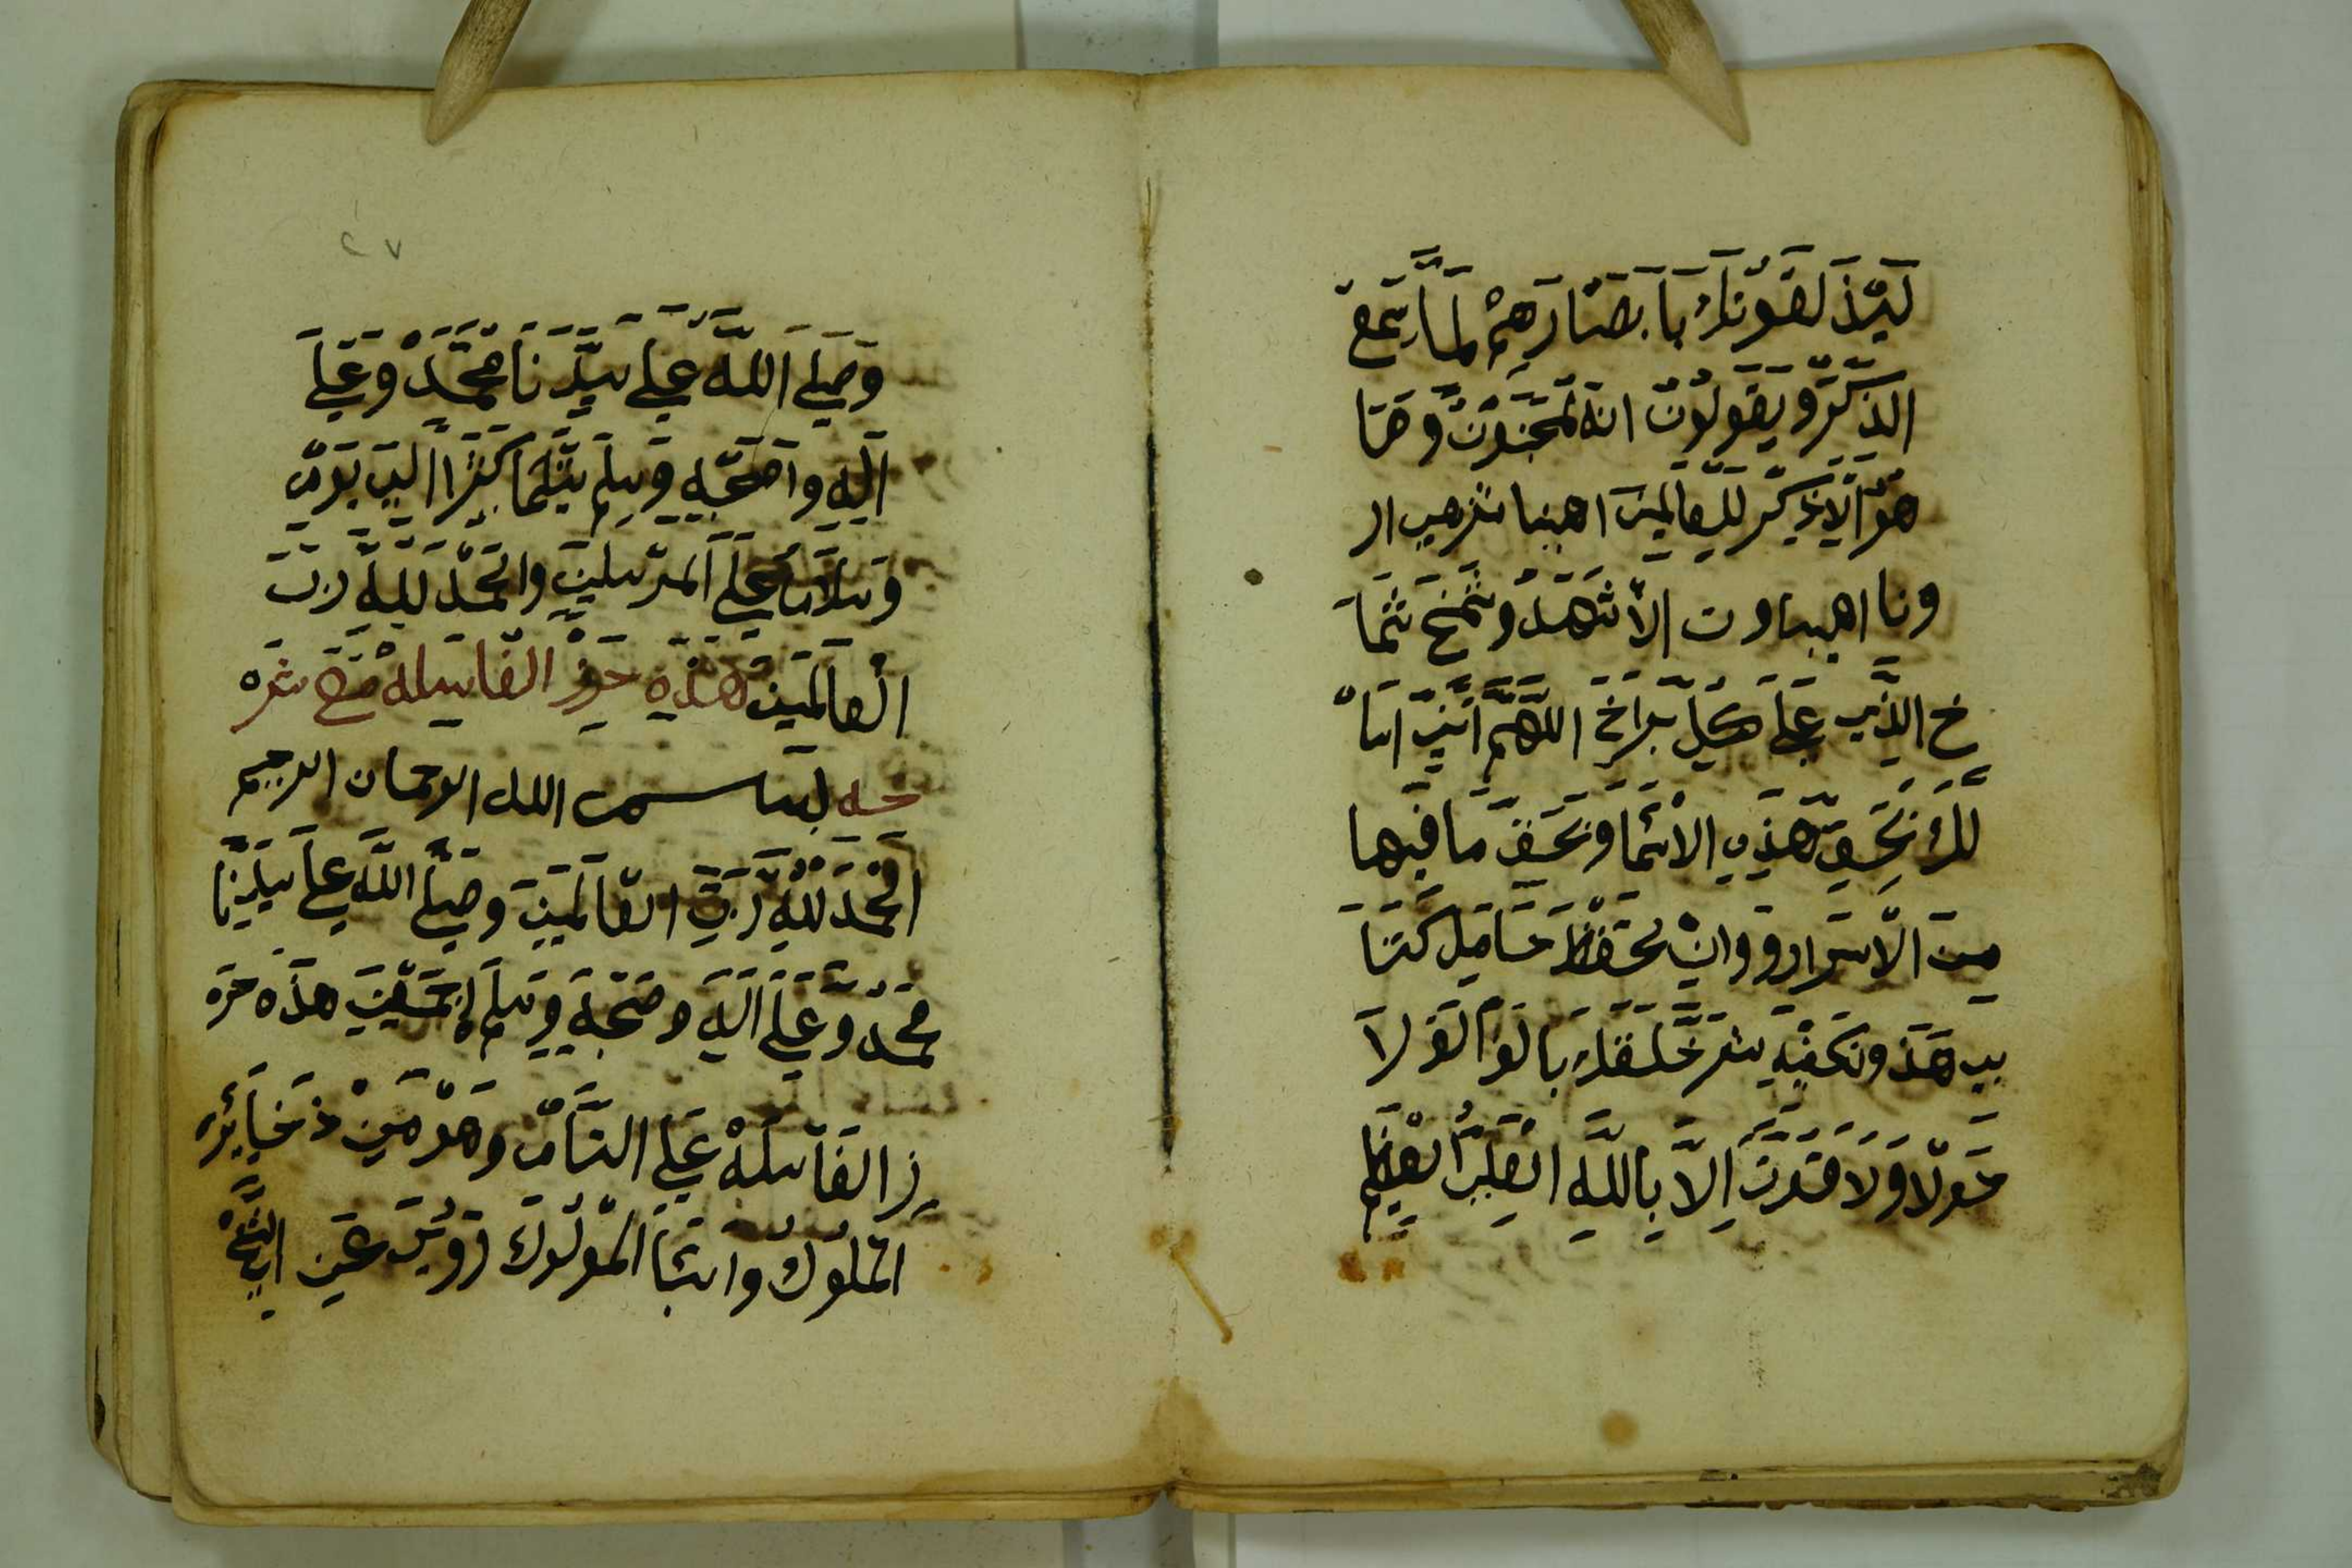 ليذلقونك بابصارهم لما سمعو
الذكر ويقولون انه لمجنون وما
هو الا ذكر للعالمين اهيا شرهيا ار
ونا اهيا وت الا شهد وشمخ شما
خ الذي على كل براخ اللهم اني اسا
لك بحق هذه الاسما وبحق ما فيها
من الاسرارو وان تحفظ حامل كتا
بي هذ وتكفيه شر خلقك
حولا ولا قدرت الا بالله العلي العظيم
٢٧
وصلى الله على سيدنا محمد وعلى
اله واصحبه وسلم تسليما كثيرا الى يوم
وسلام على المرسلين والحمد لله رب
العالمين هذه حرز الفاسله مع شره
حه بسم الله الرحمان الرحيم
الحمد لله رب العالمين وصلى الله على سيدنا
محمد وعلى اله وصحبه وسلم اجمعين هذه حر
ز الفاسله على التام وهو من ذخاير
الملوك وابنا الملوك رويت عن